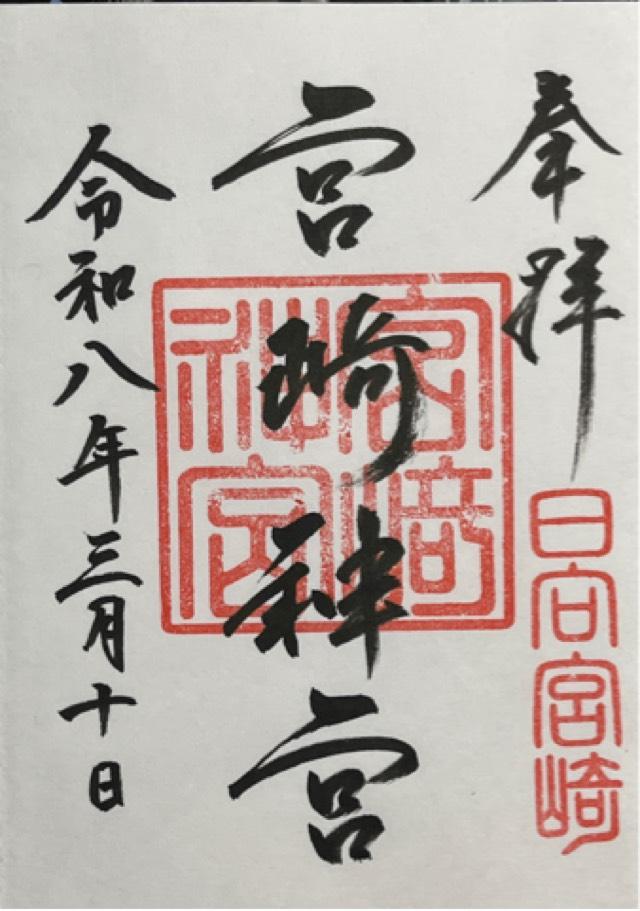 奉拝
日向宮崎
宮崎神宮
宮崎神宮
令和八年三月十日